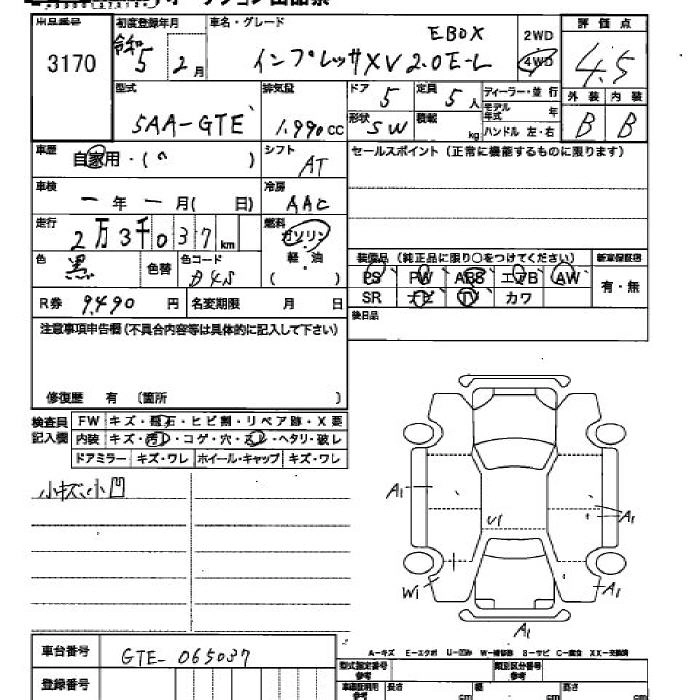 オークション出品票
出品番号 初度登録年月 車名・グレード 評価点
3170 令和5 2月 インプレッサXV 2.0E-L EBOX 2WD 4WD 4.5
型式 排気量 ドア 定員 ディーラー・並行 外装 内装
5AA-GTE 1.990cc 5 5人 モデル年式 年 B B
形状 SW 積載 kg ハンドル 左・右
車歴 自家用・( ) シフト AT セールスポイント(正常に機能するものに限ります)
車検 一年一月( 日) 冷房 AAC
走行 2万3千037km 燃料 ガソリン
軽・油
( )
色 黒 色替 色コード D4S
装備品(純正品に限り○をつけてください) 新車保証書
PS PW ABS エアB AW 有・無
SR ナビ TV カワ
R券 9,490円 名変期限 月 日 後日品
注意事項申告欄(不具合内容等は具体的に記入して下さい)
修復歴 有 〔箇所 〕
検査員記入欄 FW キズ・飛石・ヒビ割・リペア跡・X要
内装 キズ・汚レ・コゲ・穴・スレ・ヘタリ・破レ
ドアミラー キズ・ワレ ホイール・キャップ キズ・ワレ
小キズ、小凹
A1
A1
U1
W1
A1
A1
A-キズ E-エクボ U-凹み W-補修跡 S-サビ C-腐食 XX-交換済
車台番号 GTE-065037
型式指定番号 参考 類別区分番号 参考
登録番号
車庫証明用 参考 長さ cm 幅 cm 高さ cm